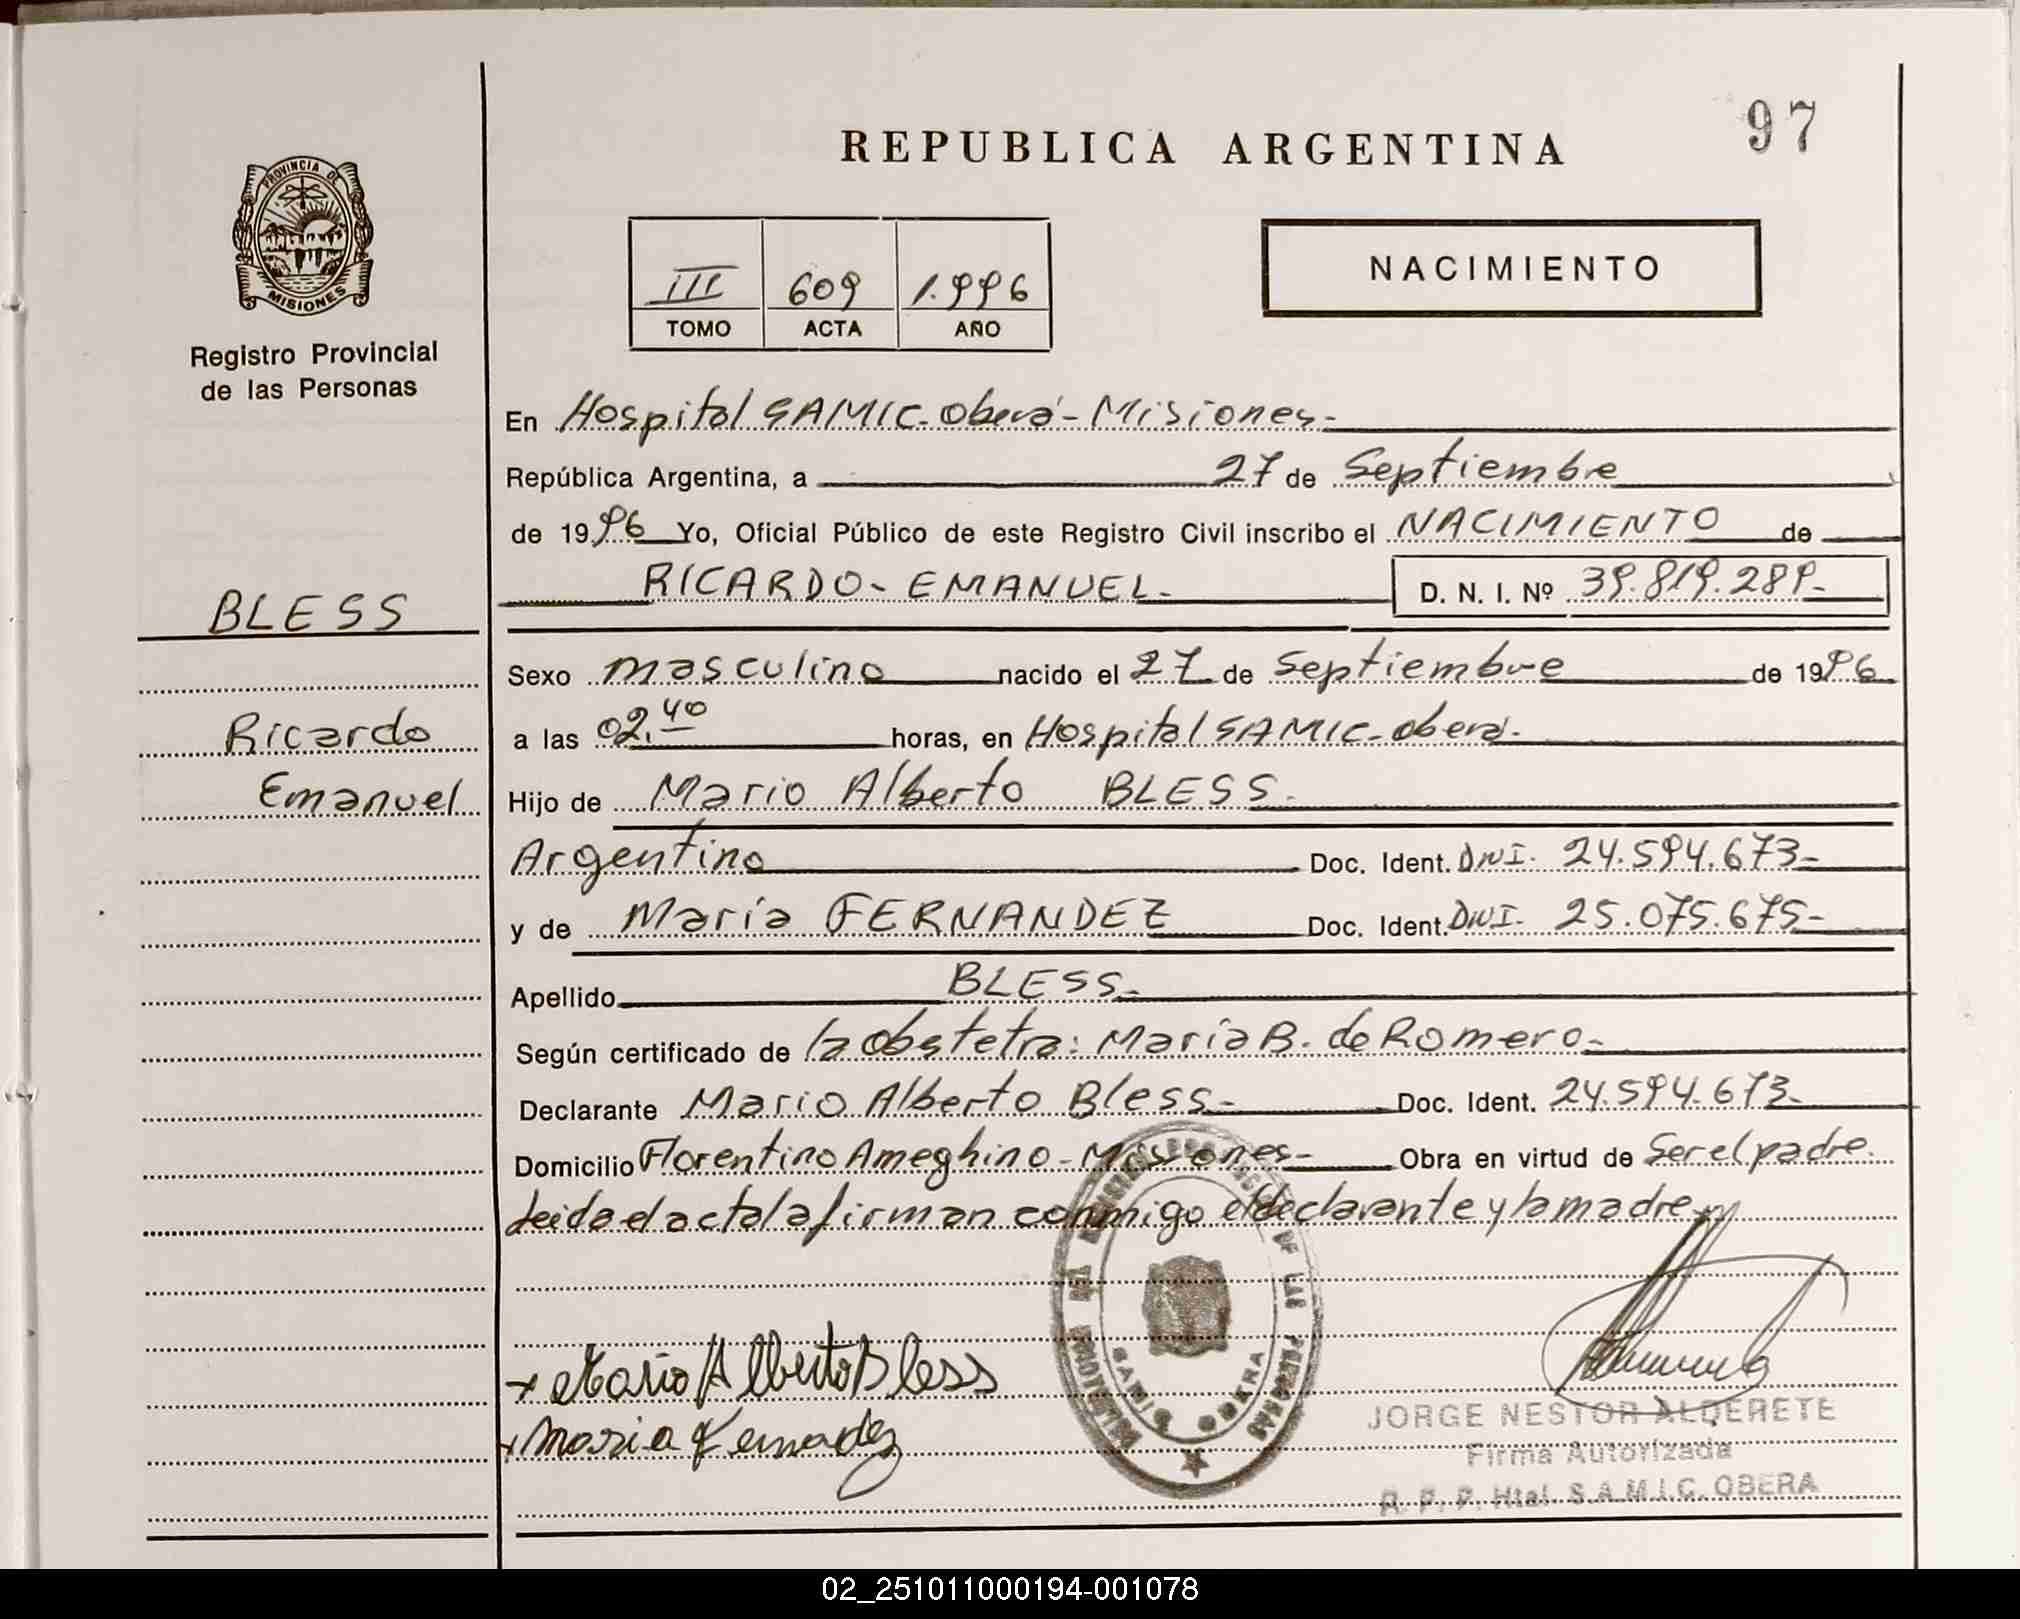 97
REPUBLICA ARGENTINA
PROVINCIA DE
MISIONES
Registro Provincial
de las Personas
III 609 1.996
TOMO ACTA AÑO
NACIMIENTO
En Hospital SAMIC. Oberá - Misiones.-
República Argentina, a 27 de Septiembre
de 1996 Yo, Oficial Público de este Registro Civil inscribo el NACIMIENTO de
RICARDO - EMANUEL.- D. N. I. Nº 39.819.289.-
BLESS
Sexo masculino nacido el 27 de Septiembre de 1996
Ricardo
a las 02.40 horas, en Hospital SAMIC - Oberá.
Emanuel
Hijo de Mario Alberto BLESS.-
Argentino Doc. Ident. DNI. 24.594.673-
y de María FERNANDEZ Doc. Ident. DNI. 25.075.675-
Apellido BLESS.-
Según certificado de la obstetra: María B. de Romero.-
Declarante Mario Alberto Bless.- Doc. Ident. 24.594.673-
Domicilio Florentino Ameghino - Misiones- Obra en virtud de Ser el padre.
Leida el acta la firman conmigo el declarante y la madre
Mario Alberto Bless
Maria Fernadez
DE LAS PERSONAS
OBERA
JORGE NESTOR ALDERETE
Firma Autorizada
R. P. P. Htal. S.A.M.I.C. OBERA
02_251011000194-001078